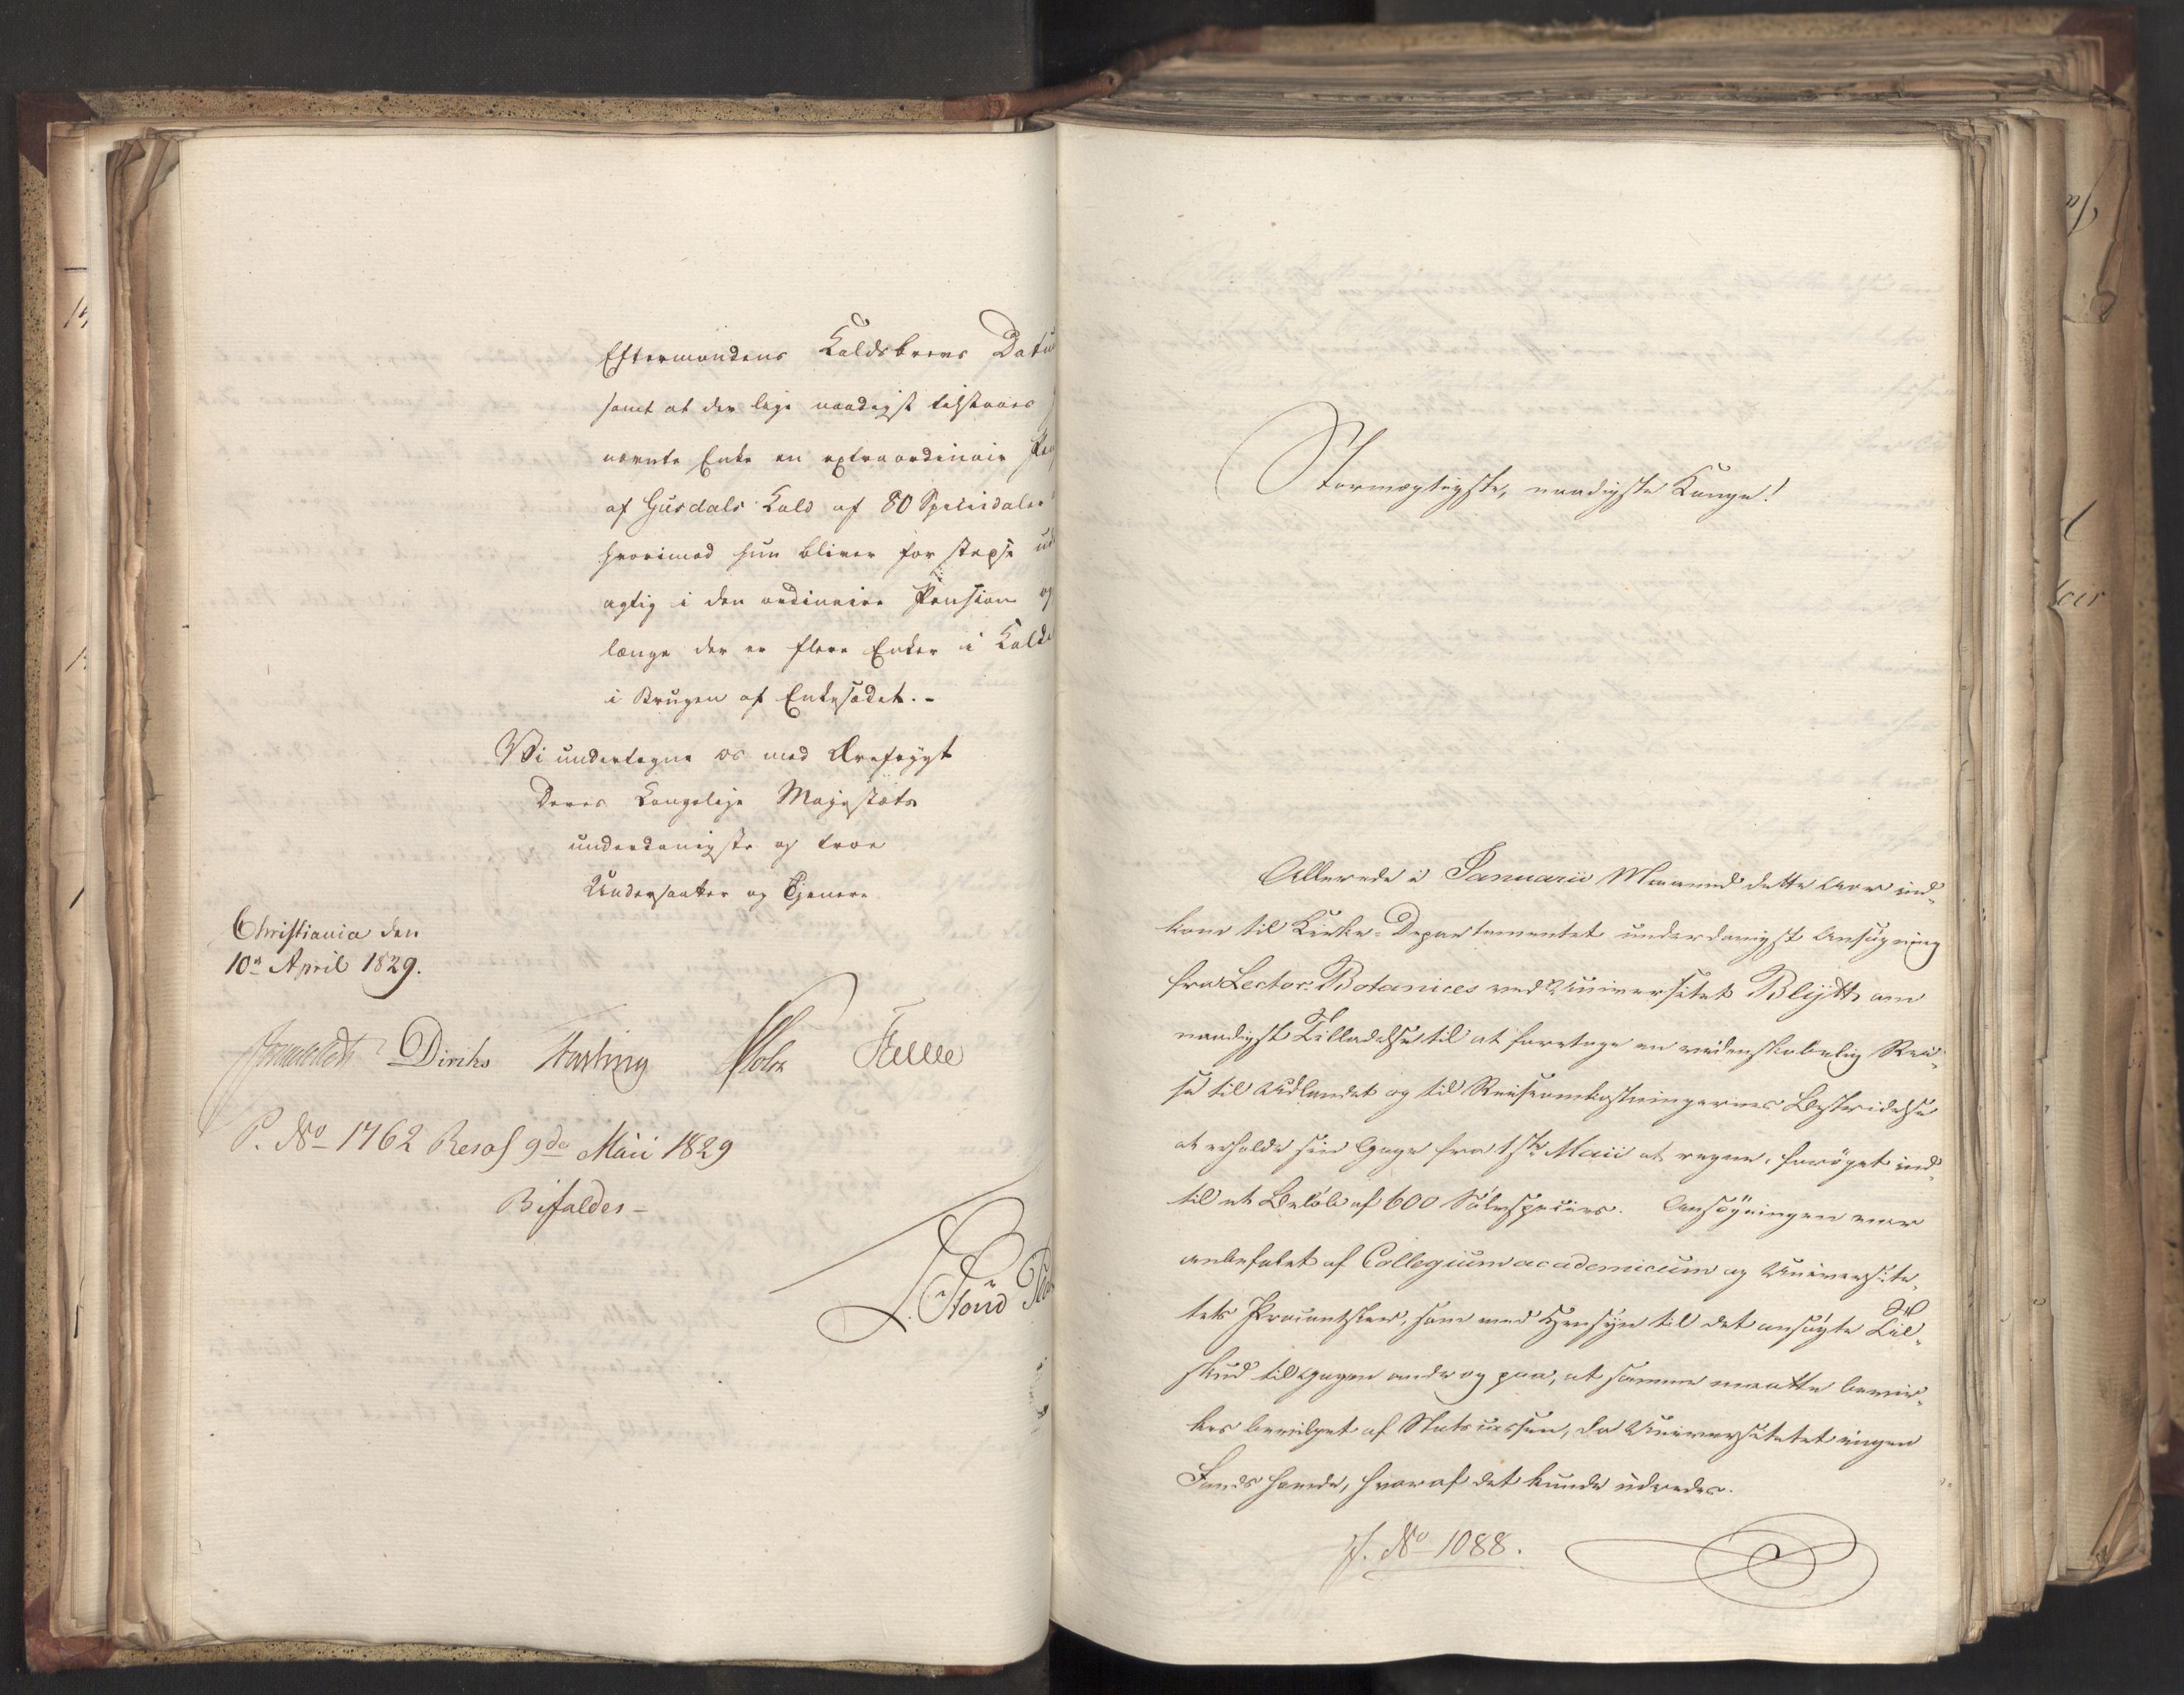 Eftermandens Kaldsbrevs Datu
samt at der lige naadigst tilstaaes
nævnte Enke en extraordinair Pen
af Gusdals Kald af 80 Speciedaler
hvorimod hun bliver for stedse ud
agtig i den ordinaire Pension og
længe der er flere Enker i Kaldet
i Brugen af Enkesædet. -
Vi undertegne os med Ærefrygt
Deres Kongelige Majestæts
underdanigste og troe
Undersaatter og Tjenere
Christiania den
10de April 1829.
Diriks
P. No 1762 Resol 9de Maii 1829
Bifaldes -
Stormægtigste, naadigste Konge!
Allerede i Januarii Maaned dette Aar ind-
kom til Kirke-Departementet underdanigst Ansøgning
fra Lector Botanices ved Universitet Blytt om
naadigst Tilladelse til at foretage en videnskabelig Rei-
se til Udlandet og til Reiseomkostningernes Bestridelse
at erholde sin Gage fra 1ste Maii at regne, forøget ind-
til et Beløb af 600 Sølvspecies. Ansøgningen var
anbefalet af Collegium academicum og Universite-
tets Procantsler, som med Hensyn til det ansøgte Til-
skud til Gagen androg paa, at samme maatte bevir-
kes bevilget af Statscassen, da Universitetet ingen
Fonds havde, hvoraf det kunde udredes.
J. No 1088.